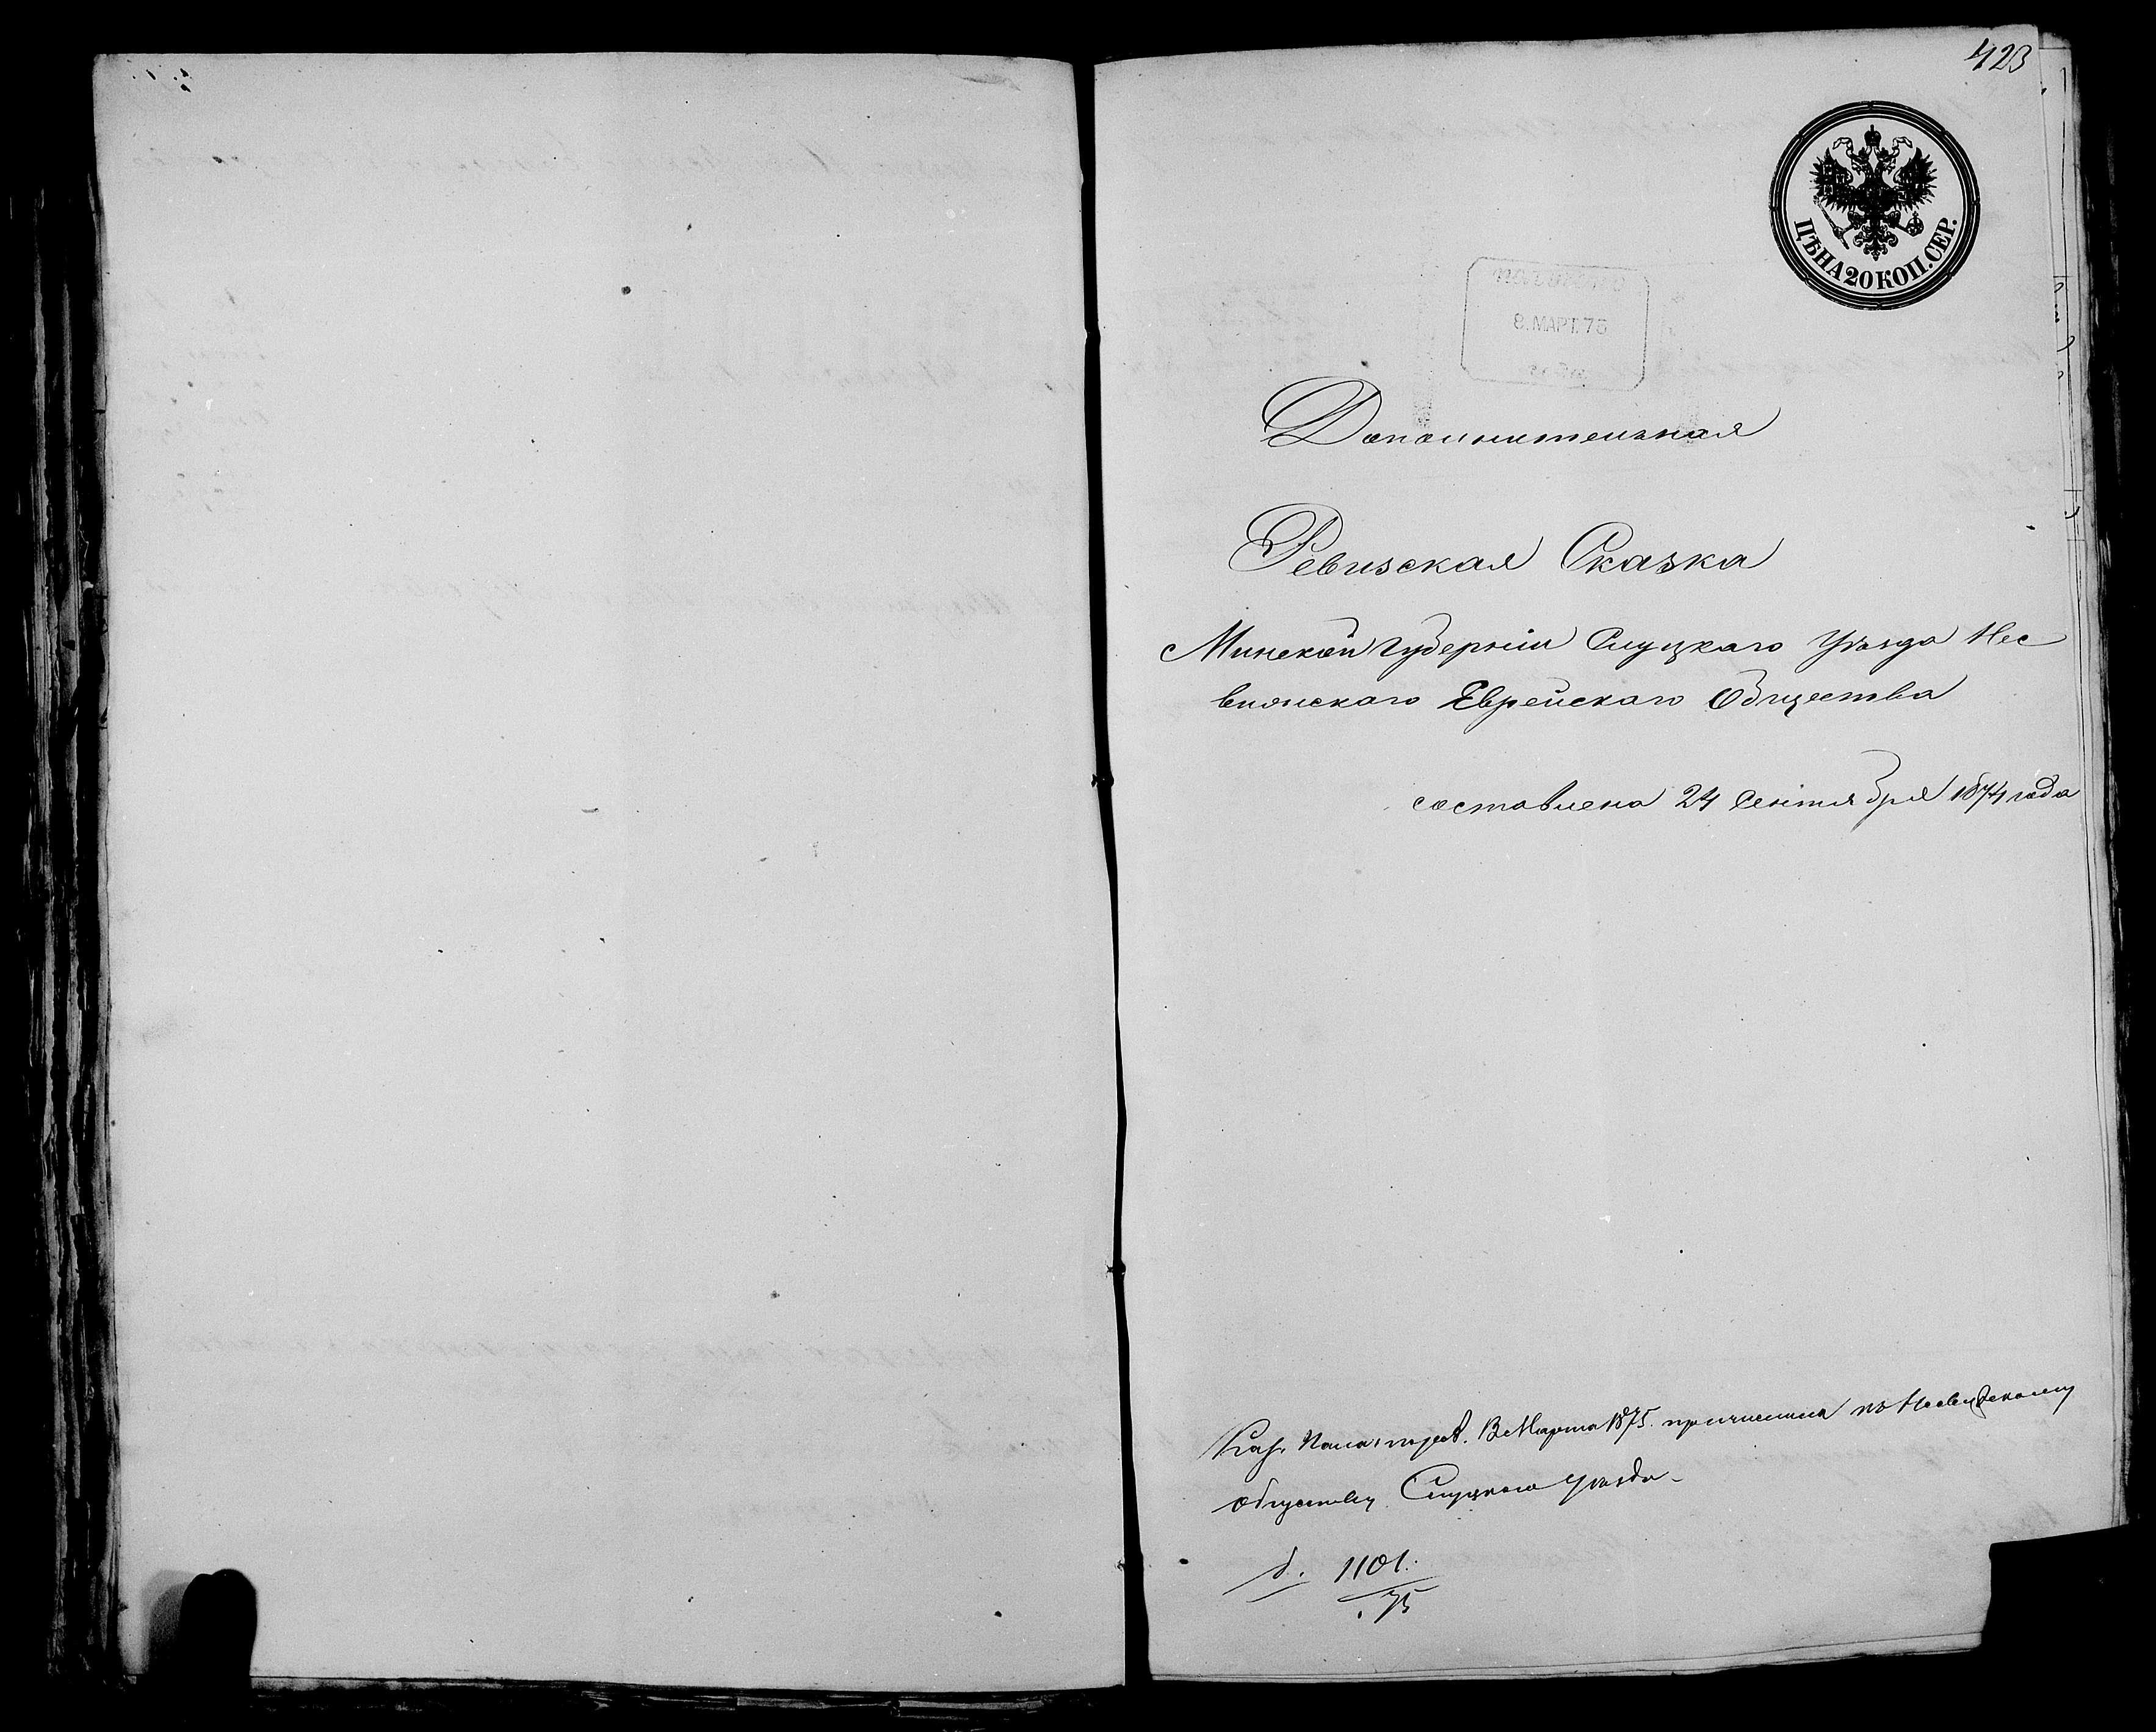 423
ЦѢНА 20 КОП. СЕР.
8. МАРТ. 75
Дополнительная
Ревизская Сказка
Минской Губерніи Слуцкаго Уѣзда Нес
вижскаго Еврейскаго Общества
составлена 24 Сентября 1874 года
Каз. Марта 1875. причислила къ Несвижскому
обществу Слуцкаго уѣзда
д. 1101.
75